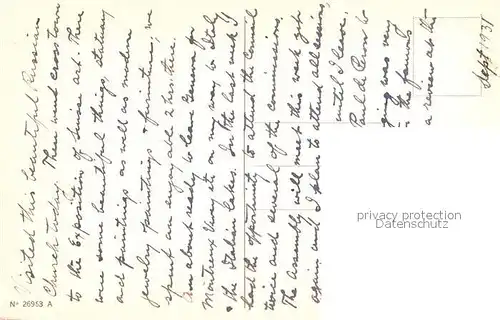 Visited this beautiful Russian
Church today. Then went cross town
to the Exposition of Suisse art. There
were some beautiful things, statuary
and paintings as well as modern
jewelry, paintings & furniture; we
spent an enjoyable 2 hrs there.
Am about ready to leave Geneva for
Montreux Vevey etc on my way to Italy
& the Italian lakes. In the last week I
had the opportunity to attend the Council
twice and several of the commissions.
The Assembly will meet this week yet
again and I plan to attend all sessions,
until I leave.
Paul de to
going was very
is the famous
a review at the
Sept 1931
privacy protection
Datenschutz
N° 26953 A